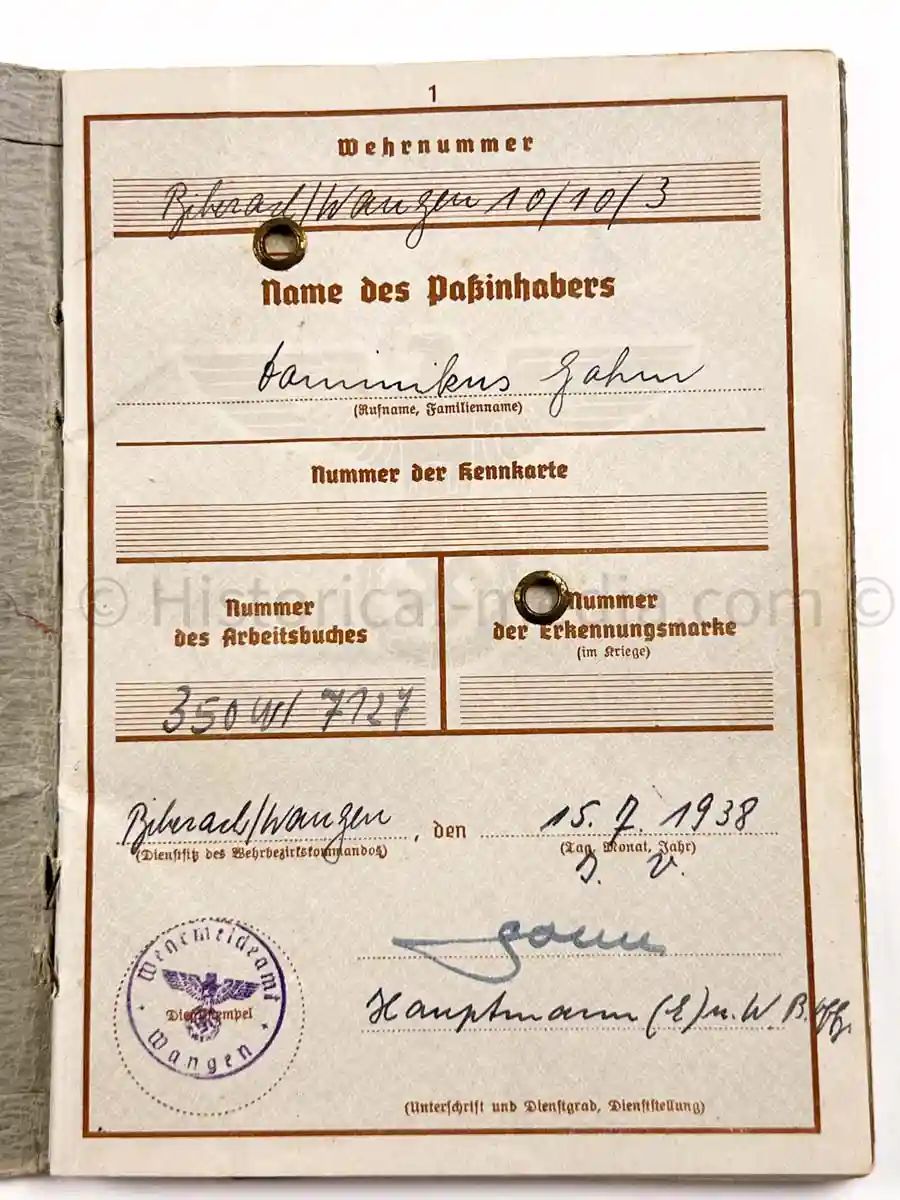 1
Wehrnummer
Biberach/Wangen 10/10/3
Name des Paßinhabers
Dominikus
(Rufname, Familienname)
Nummer der Kennkarte
© Historical-media.com ©
Nummer des Arbeitsbuches
Nummer der Erkennungsmarke
(im Kriege)
7127
Biberach/Wangen, den 15. 7. 1938
(Dienstsitz des Wehrbezirkskommandos)
(Tag, Monat, Jahr)
Hauptmann (E) u. W. B. Offz.
Wehrmeldeamt
Dienststempel
Wangen
(Unterschrift und Dienstgrad, Dienststellung)